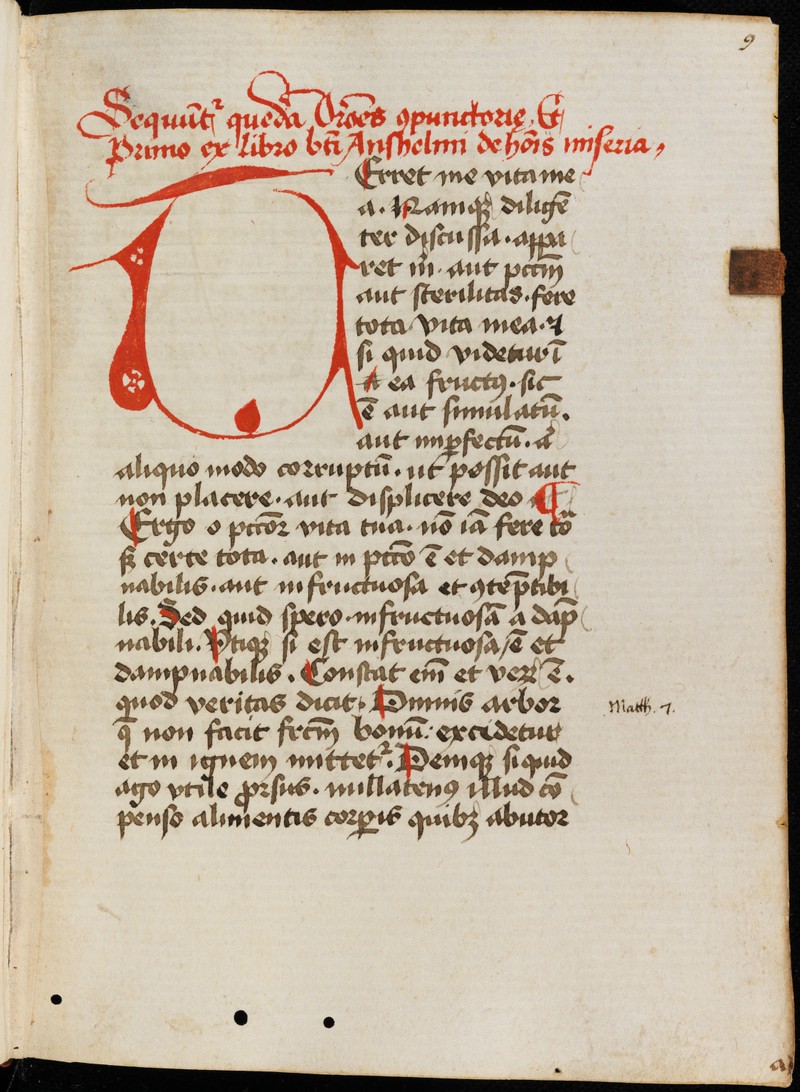 9
Sequūt᷑ quedā Oro͞es ꝯpunctorie. Et
Primo ex libro bt͞i Anshelmi de ho͞is miseria,
TErret me vita me
a. Namqꝫ diligē
ter discussa. appa
ret m̄. aut pcc͞m
aut sterilitas. fere
tota vita mea. ⁊
si quid videtur ī
ea fructꝰ. sic
ē aut simulatū.
aut imꝑfectū. a͛
aliquo modo corruptū. ut possit aut
non placere. aut displicere deo
Ergo o pcco͞r vita tua. nō iā fere to͞a
sꝫ certe tota. aut in pcc͞o ē et damp
nabilis. aut infructuosa et ꝯte͞ptibi
lis. Sed quid spero. infructuosā a dāp
nabili. Vtiqꝫ si est infructuosa, ē et
dampnabilis. Constat em̄ et veꝝ ē.
quod veritas dicit. Omnis arbor
q̄ non facit frc͞m bonū. excidetur
et in ignem mittet᷑. Demqꝫ si quid
ago vtile ꝓrsus. nullatenꝰ illud cō
penso alimentis corꝑis quibꝫ abutor
Matth. 7.